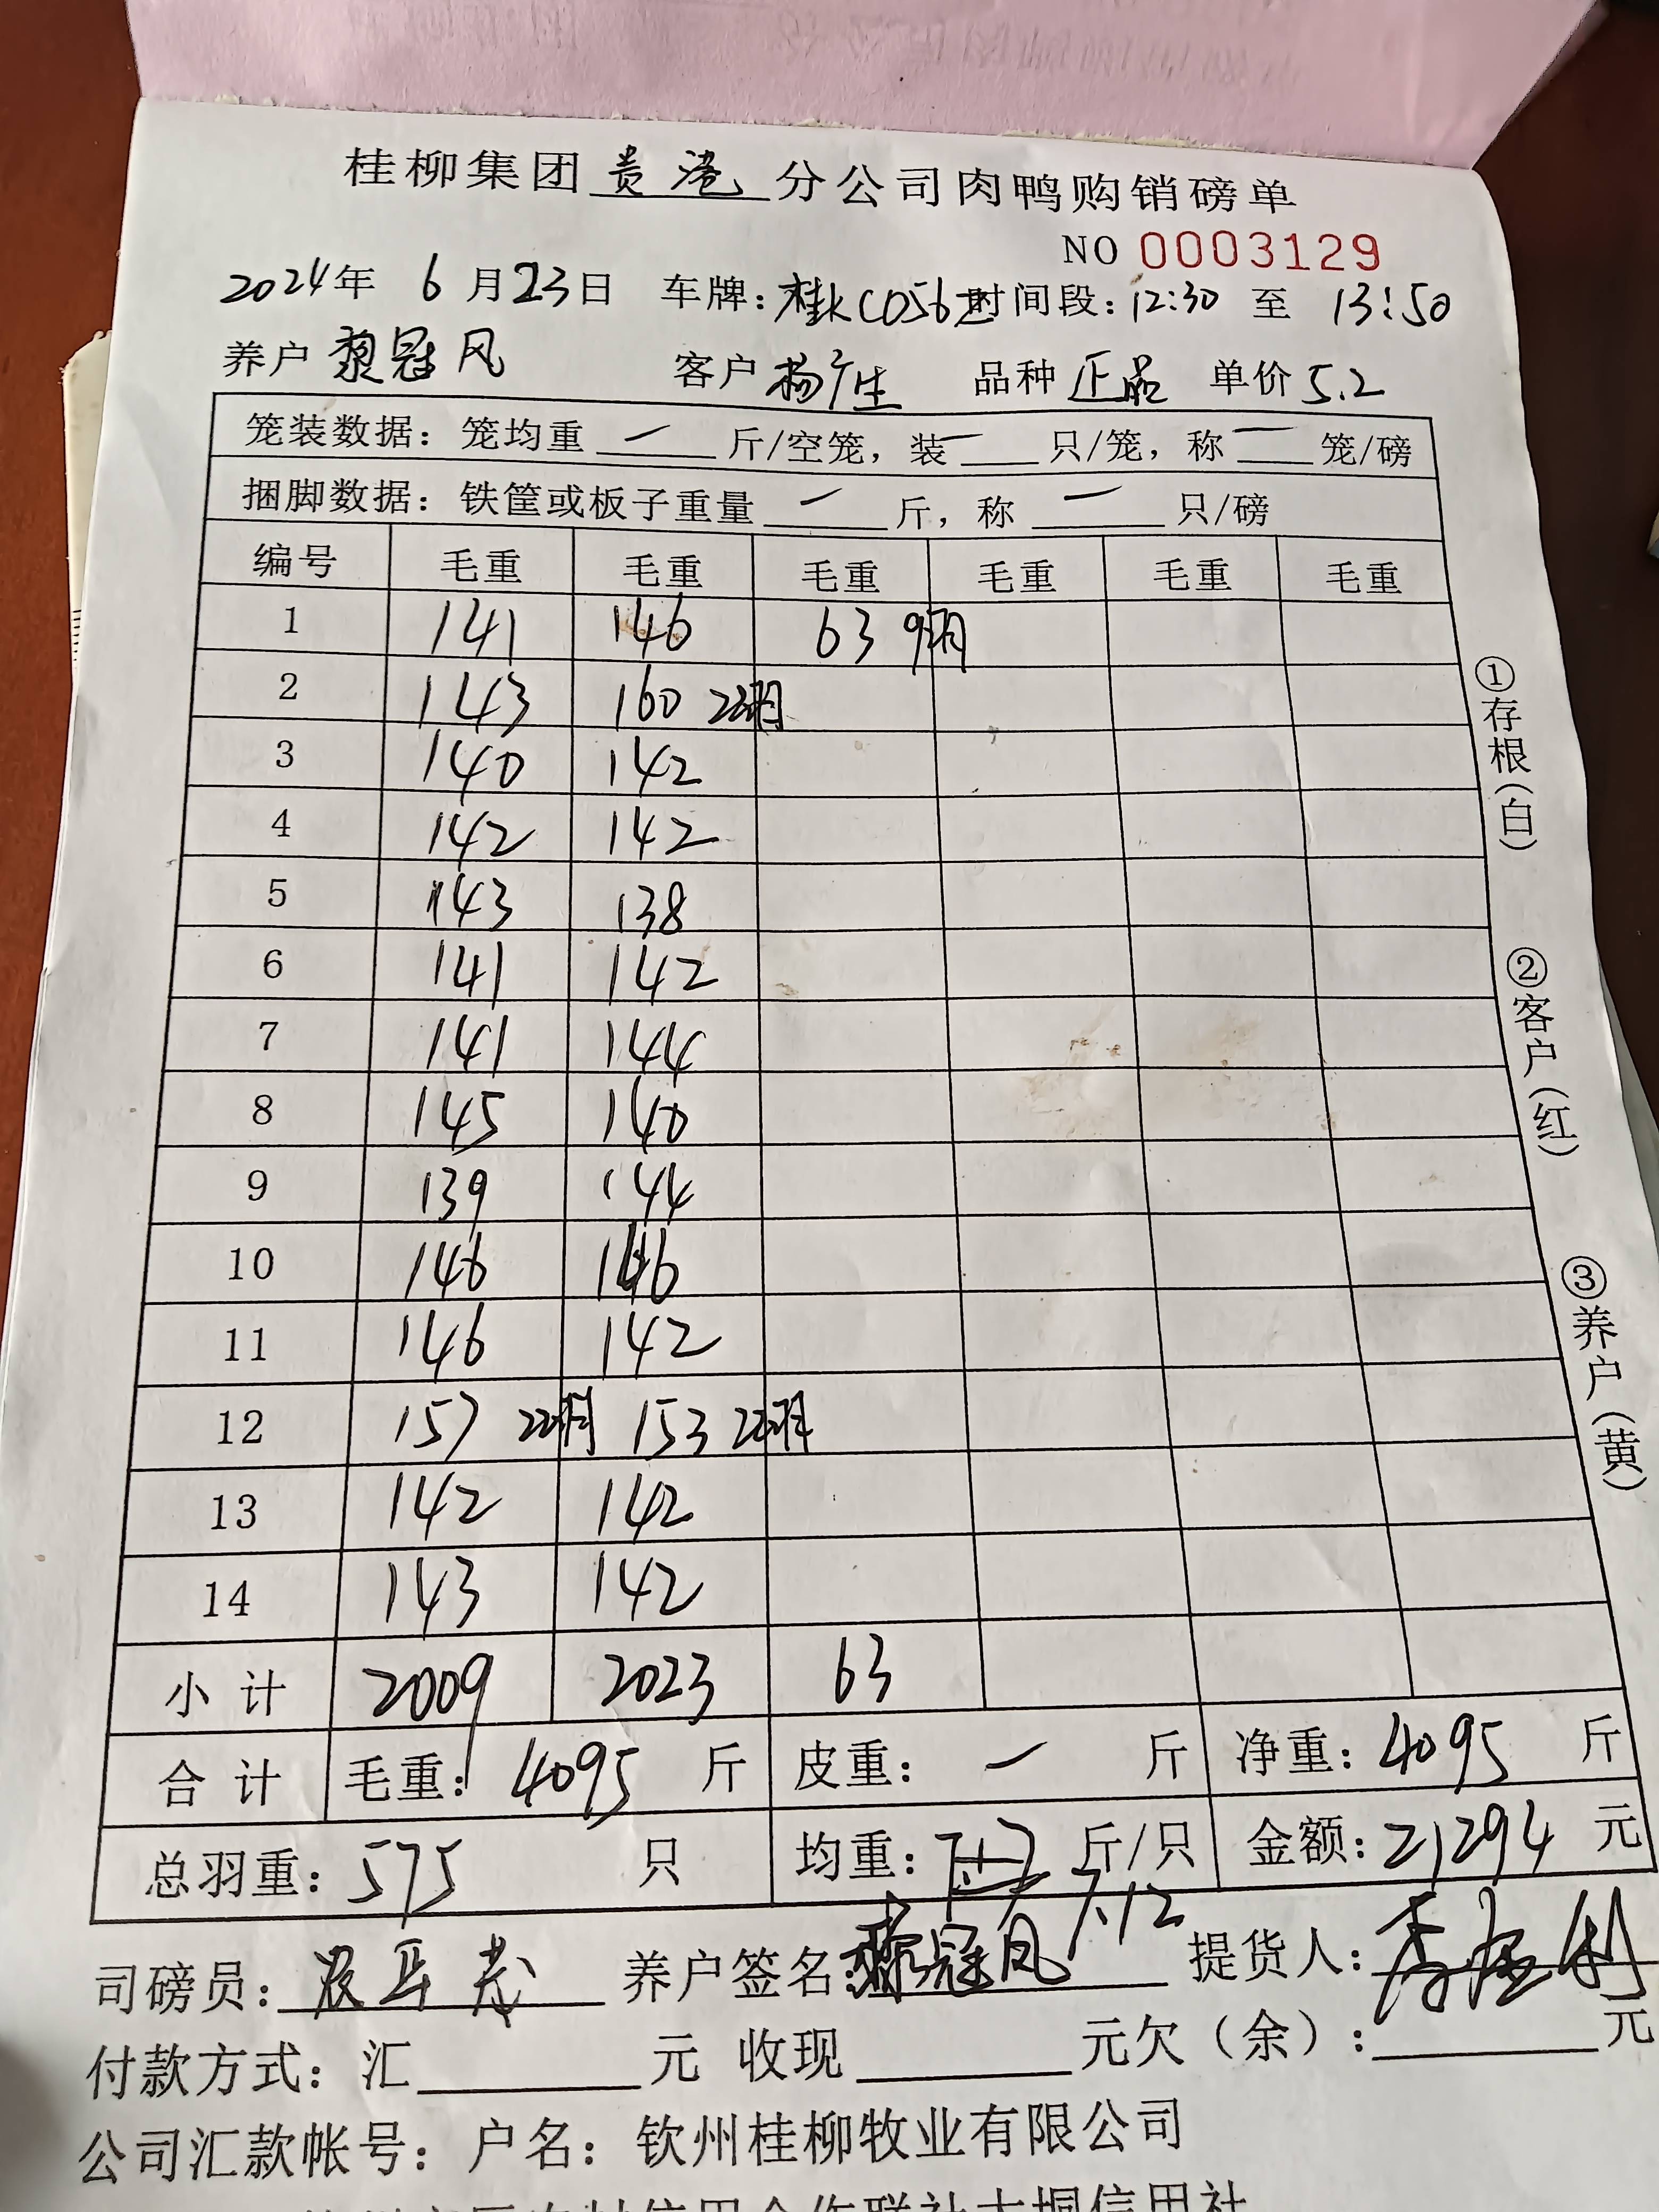 桂柳集团贵港分公司肉鸭购销磅单
NO 0003129
2024年 6月23日 车牌：桂KC056 时间段：12:30 至 13:50
养户 黎冠凤 客户 杨广生 品种 正品 单价 5.2
笼装数据：笼均重 — 斤/空笼，装 — 只/笼，称 — 笼/磅
捆脚数据：铁筐或板子重量 — 斤，称 — 只/磅
编号 毛重 毛重 毛重 毛重 毛重 毛重
1 141 146 63 9
2 143 160 22
3 140 142
4 142 142
5 143 138
6 141 142
7 141 144
8 145 140
9 139 144
10 146 146
11 146 142
12 157 22 153 22
13 142 142
14 143 142
小计 2009 2023 63
合计 毛重：4095 斤 皮重：— 斤 净重：4095 斤
总羽重：575 只 均重：7.12 斤/只 金额：21294 元
司磅员： 养户签名：黎冠凤 提货人：
付款方式：汇 元 收现 元欠（余）： 元
公司汇款帐号：户名：钦州桂柳牧业有限公司
①存根（白）
②客户（红）
③养户（黄）